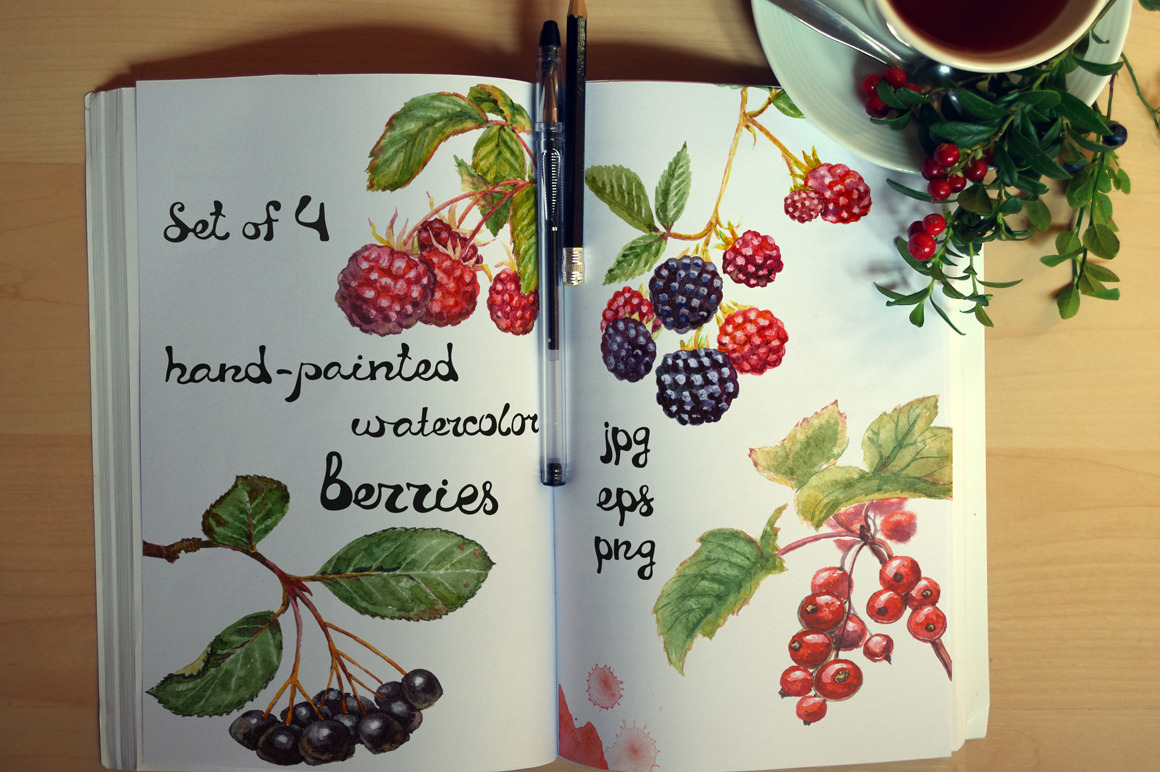 Set of 4
hand-painted
watercolor
berries
jpg
eps
png